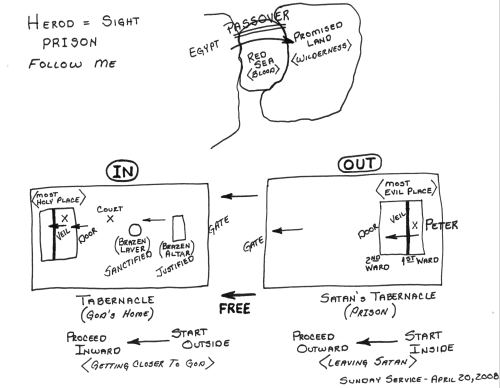 HEROD = SIGHT
PRISON
FOLLOW ME
PASSOVER
EGYPT
RED
SEA
<BLOOD>
PROMISED
LAND
<WILDERNESS>
IN
<MOST
HOLY PLACE>
COURT
X
X
VEIL
DOOR
(BRAZEN
LAVER)
SANCTIFIED
(BRAZEN
ALTAR)
JUSTIFIED
GATE
TABERNACLE
(GOD'S HOME)
PROCEED
INWARD
START
OUTSIDE
<GETTING CLOSER TO GOD>
FREE
OUT
<MOST
EVIL PLACE>
GATE
DOOR
VEIL
X
PETER
2ND
WARD
1ST WARD
SATAN'S TABERNACLE
(PRISON)
PROCEED
OUTWARD
START
INSIDE
<LEAVING SATAN>
SUNDAY SERVICE - APRIL 20, 2008